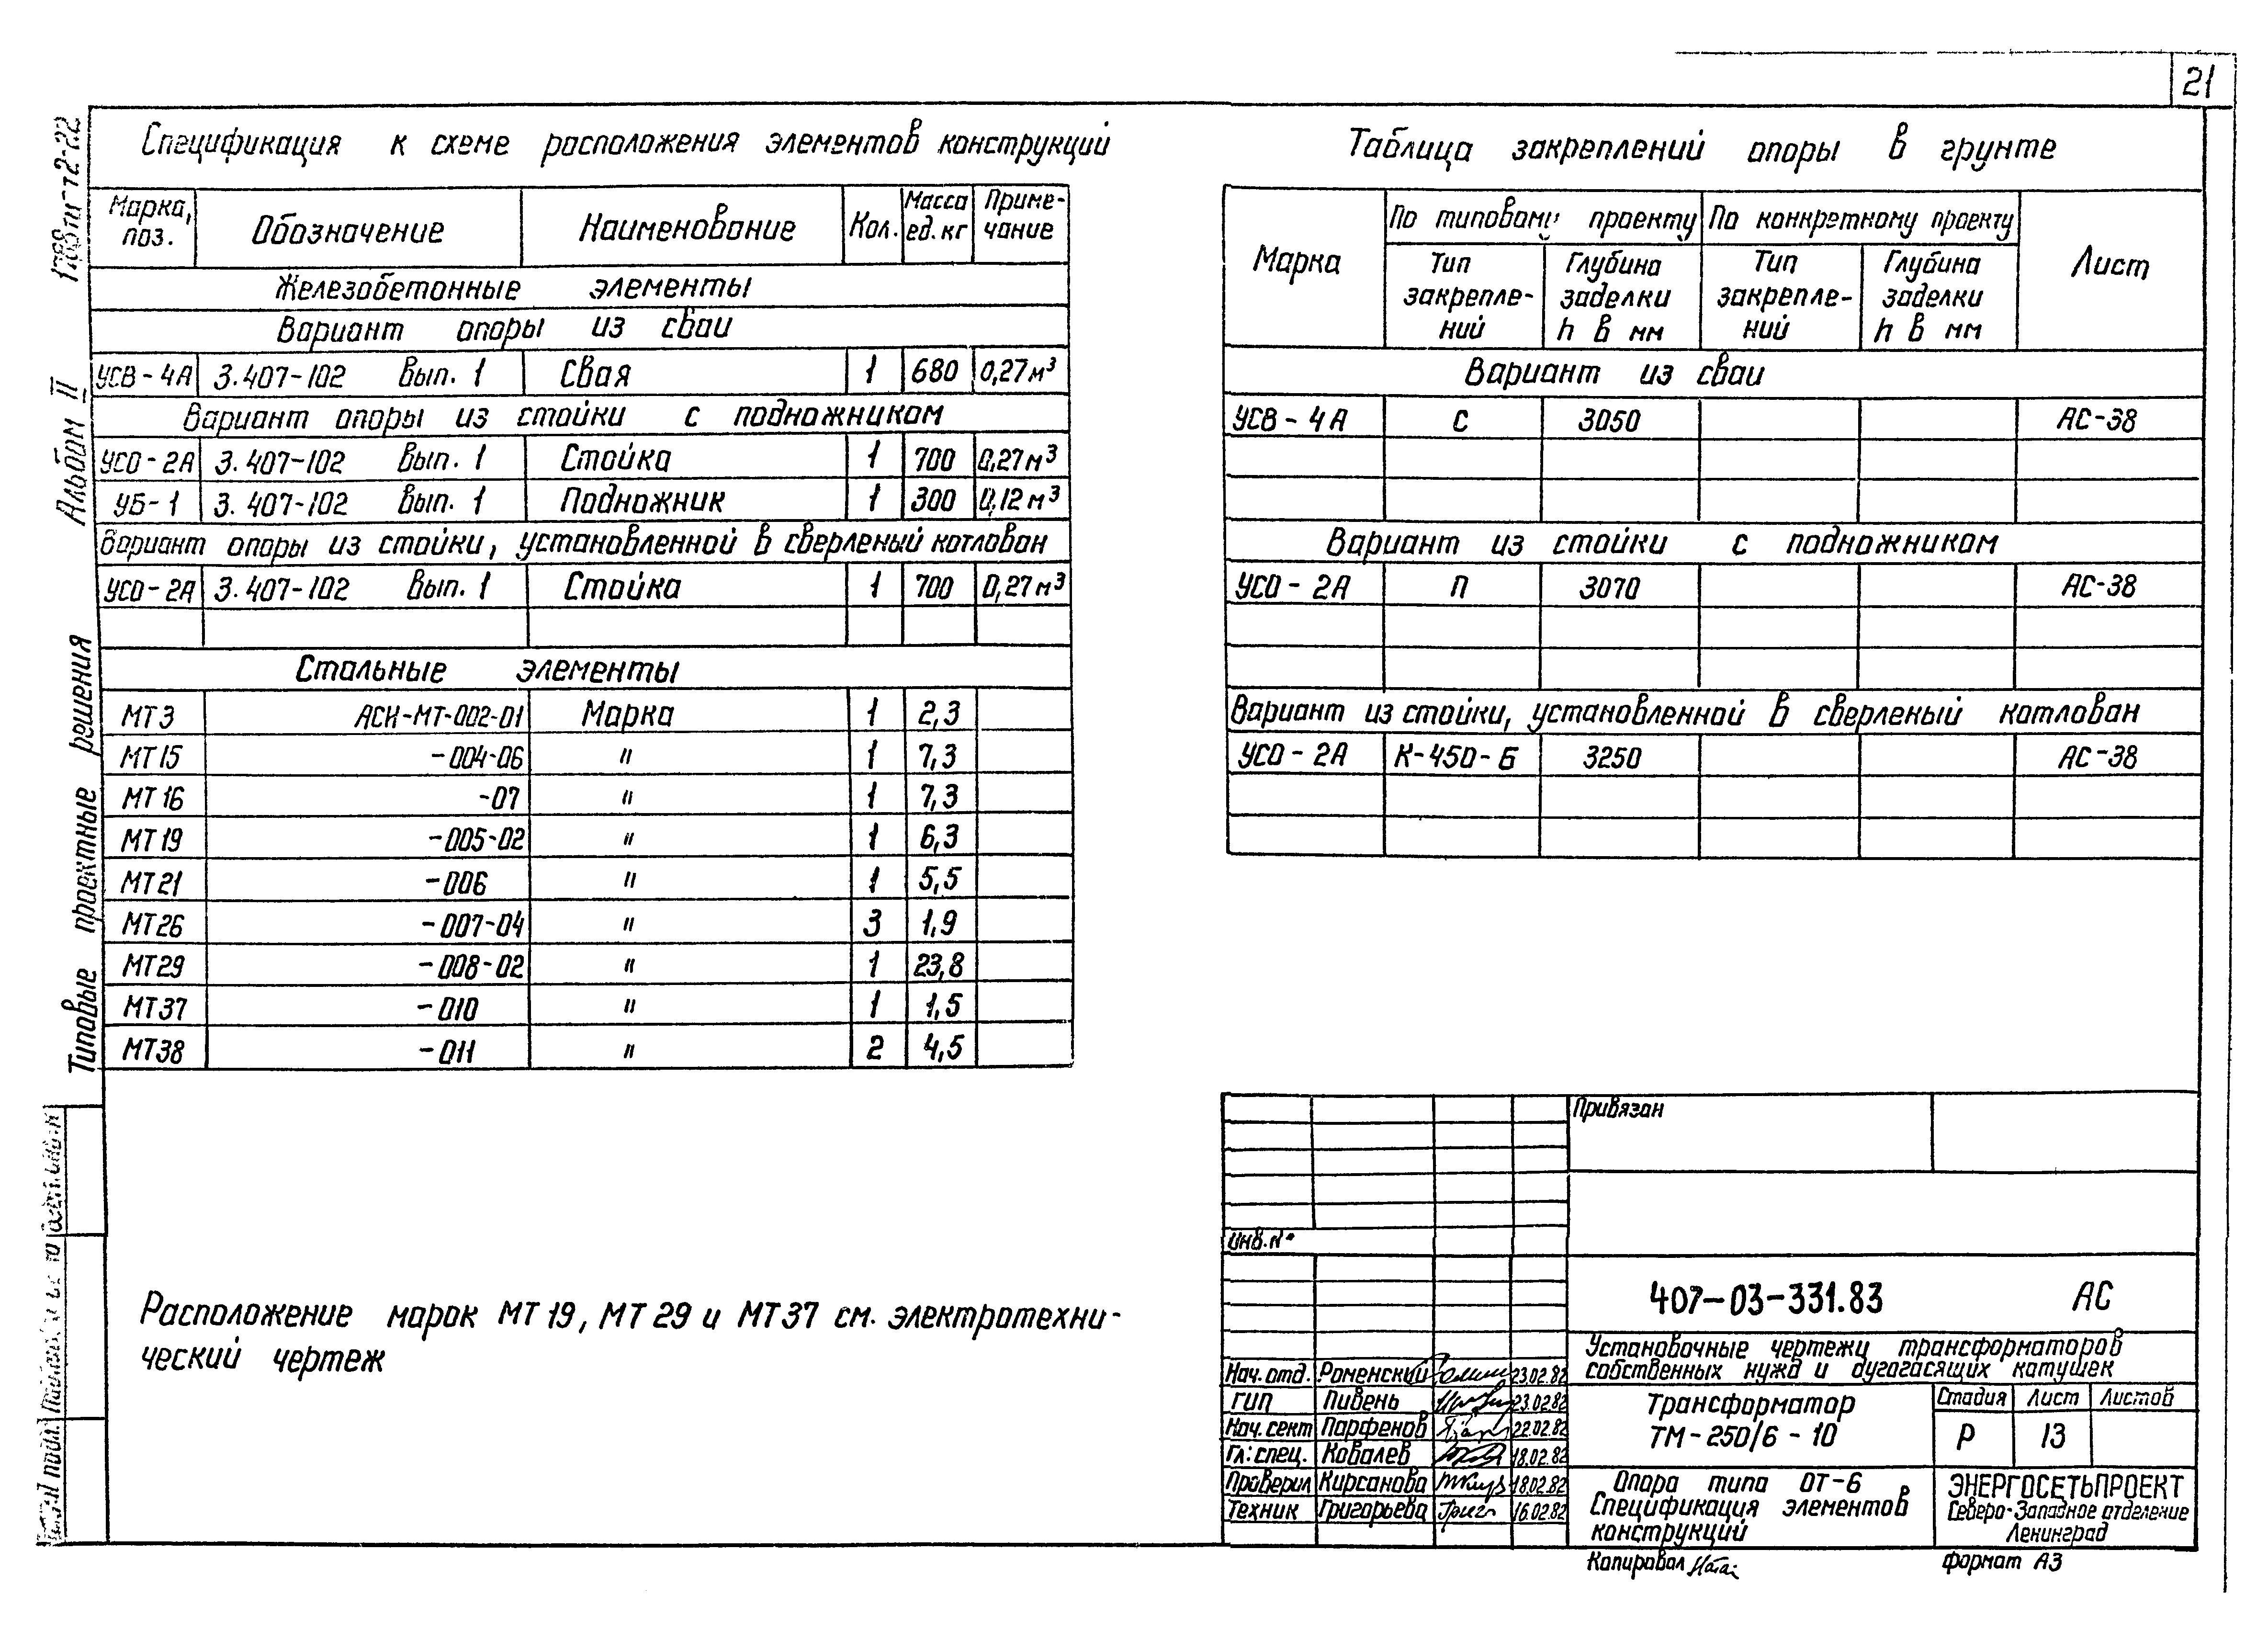 21
Спецификация к схеме расположения элементов конструкций
Марка, поз. Обозначение Наименование Кол. Масса ед. кг Приме-чание
Железобетонные элементы
Вариант опоры из сваи
УСВ-4А 3.407-102 Вып. 1 Свая 1 680 0,27м³
Вариант опоры из стойки с подножником
УСО-2А 3.407-102 Вып. 1 Стойка 1 700 0,27м³
УБ-1 3.407-102 Вып. 1 Подножник 1 300 0,12м³
Вариант опоры из стойки, установленной в сверленый котлован
УСО-2А 3.407-102 Вып. 1 Стойка 1 700 0,27м³
Стальные элементы
МТ3 АСИ-МТ-002-01 Марка 1 2,3
МТ15 -004-06 " 1 7,3
МТ16 -07 " 1 7,3
МТ19 -005-02 " 1 6,3
МТ21 -006 " 1 5,5
МТ26 -007-04 " 3 1,9
МТ29 -008-02 " 1 23,8
МТ37 -010 " 1 1,5
МТ38 -011 " 2 4,5
Таблица закреплений опоры в грунте
Марка По типовому проекту По конкретному проекту Лист
Тип закрепле-ний Глубина заделки h в мм Тип закрепле-ний Глубина заделки h в мм
Вариант из сваи
УСВ-4А С 3050 АС-38
Вариант из стойки с подножником
УСО-2А П 3070 АС-38
Вариант из стойки, установленной в сверленый котлован
УСО-2А К-450-Б 3250 АС-38
Расположение марок МТ19, МТ29 и МТ37 см. электротехни-
ческий чертеж
Альбом II
Типовые проектные решения
Привязан
Инв. №
407-03-331.83 АС
Установочные чертежи трансформаторов
собственных нужд и дугогасящих катушек
Нач. отд. Роменский 23.02.82
ГИП Пивень 23.02.82
Нач. сект Парфенов 22.02.82
Гл. спец. Ковалев 18.02.82
Проверил Кирсанова 18.02.82
Техник Григорьева 16.02.82
Трансформатор
ТМ-250/6-10
Стадия Лист Листов
Р 13
Опора типа ОТ-6
Спецификация элементов
конструкций
ЭНЕРГОСЕТЬПРОЕКТ
Северо-Западное отделение
Ленинград
Копировал
Формат А3